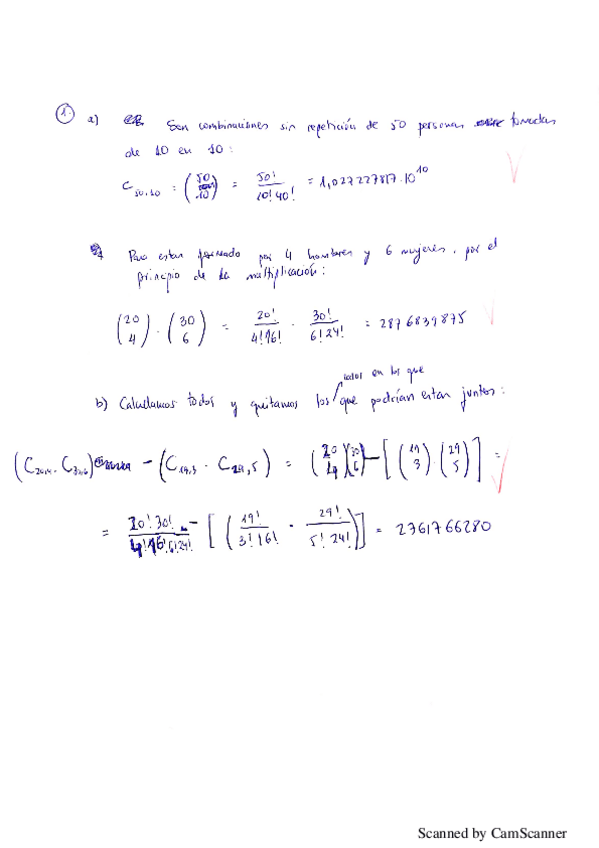 1. a) Son combinaciones sin repetición de 50 personas tomadas
de 10 en 10:
C50,10 = (50 10) = 50!/10!40! = 1,027227817·10^10
Para estar formado por 4 hombres y 6 mujeres, por el
principio de la multiplicación:
(20 4) · (30 6) = 20!/4!16! · 30!/6!24! = 2876839875
todos en los que
b) Calculamos todos y quitamos los que podrían estar juntos:
(C20,4 · C30,6) − (C19,3 · C29,5) = (20 4)(30 6) − [(19 3)·(29 5)] =
= 20!30!/4!16!6!24! − [(19!/3!16! · 29!/5!24!)] = 2761766280
Scanned by CamScanner